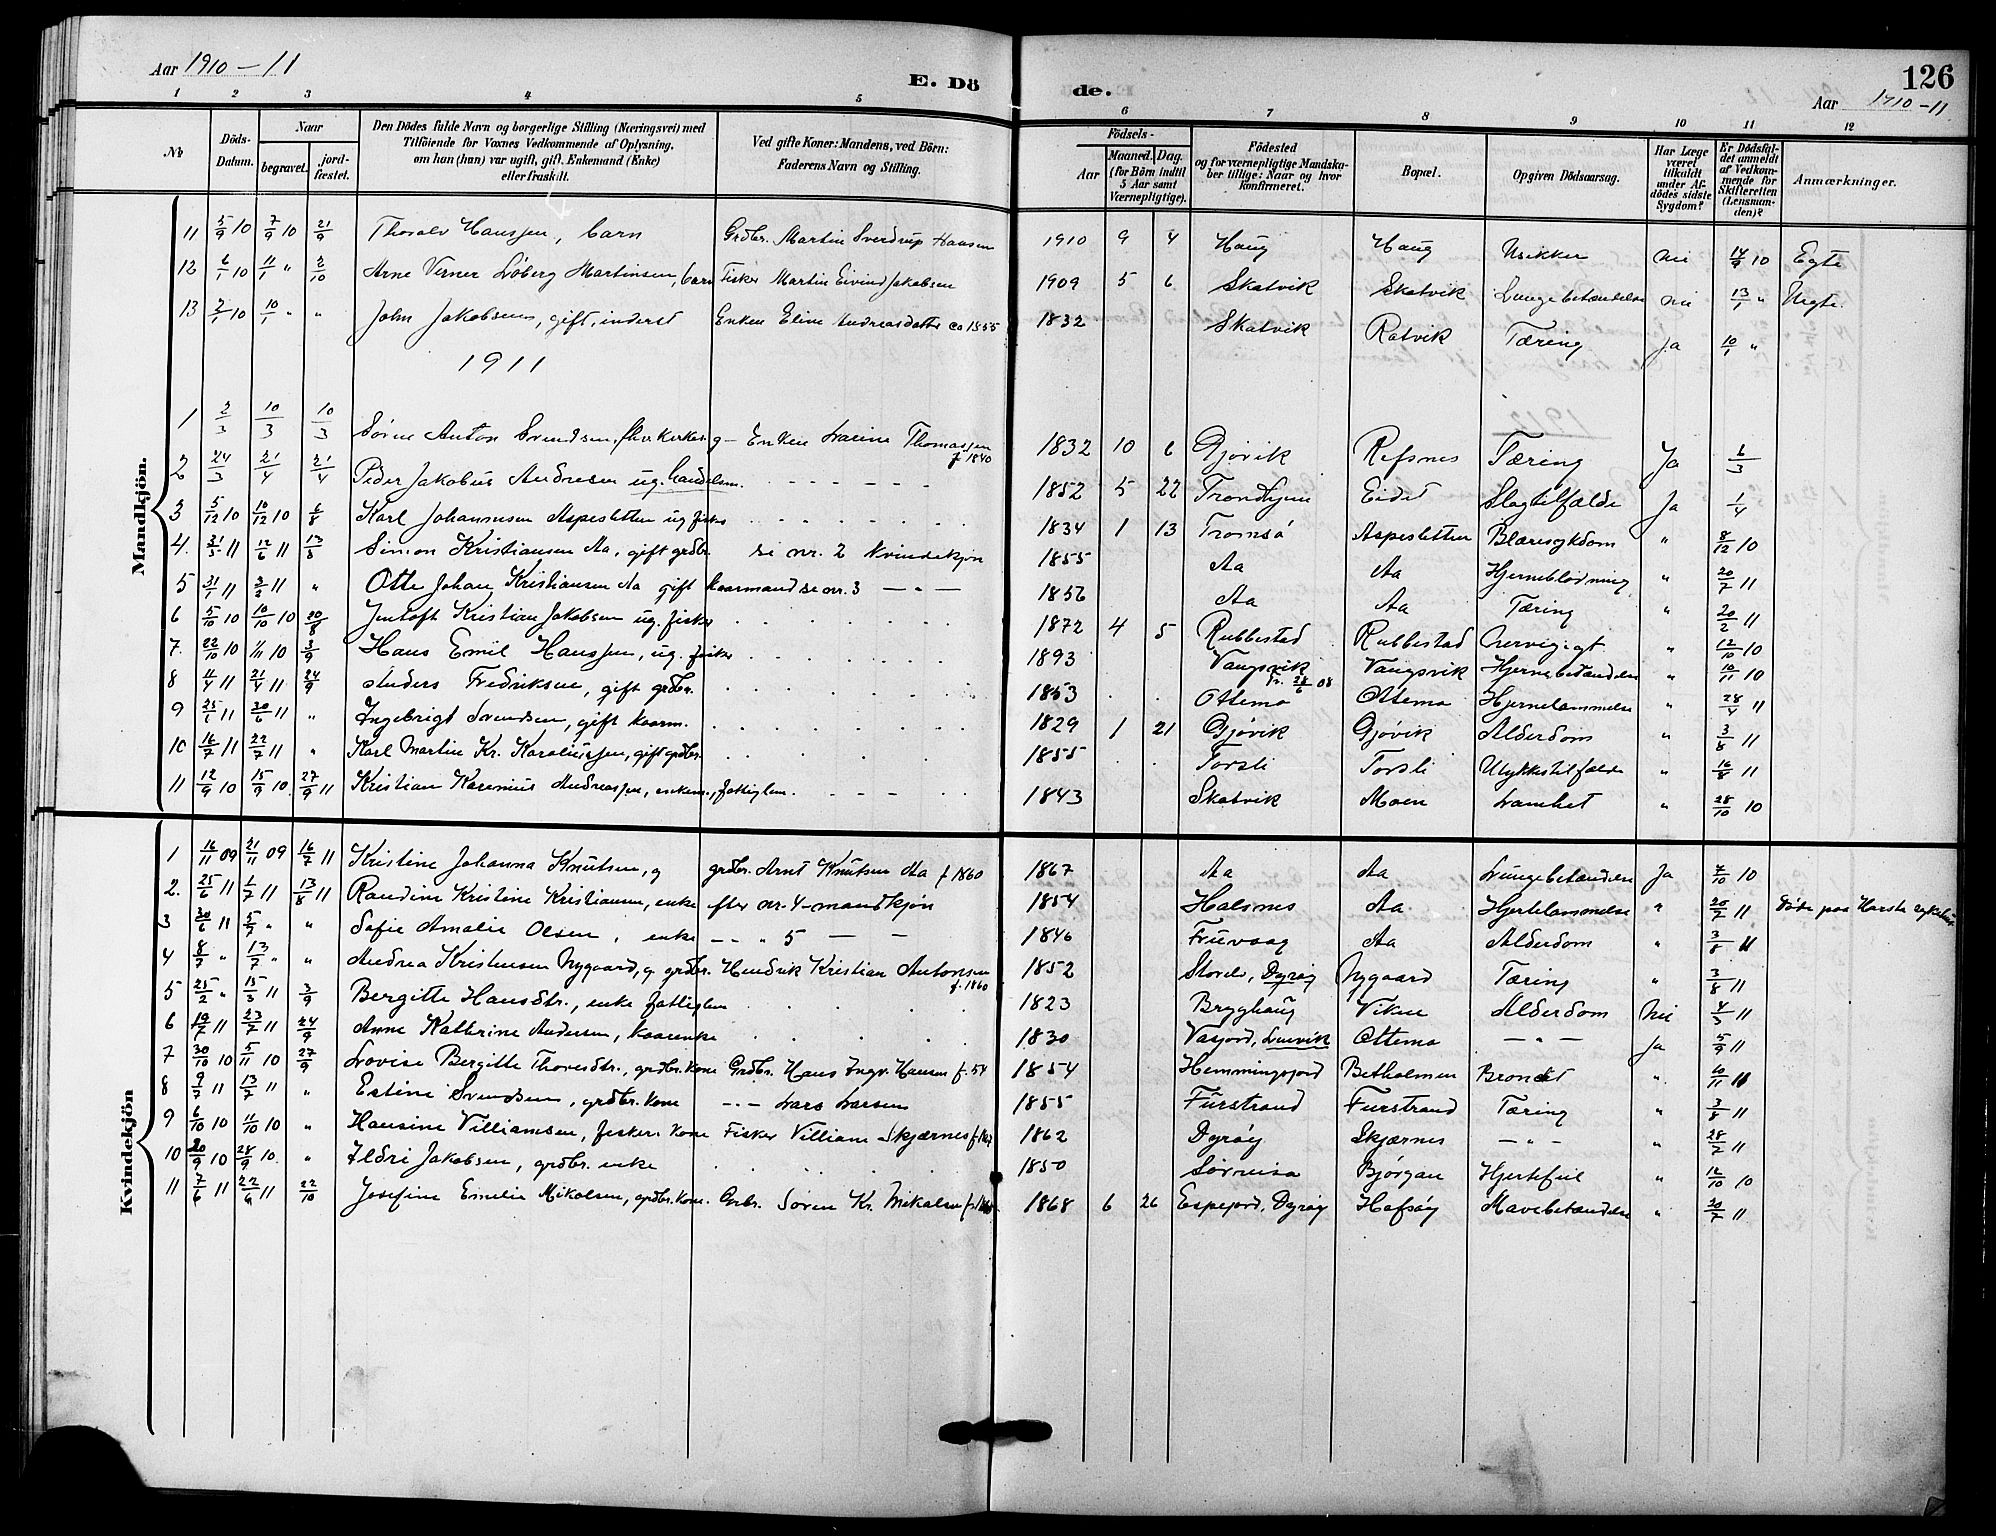 Aar 1910-11
E. Dö
de.
126
Aar 1910-11
1 2 3 4 5 6 7 8 9 10 11 12
No
Döds-Datum.
Naar
begravet.
jordfæstet.
Den Dödes fulde Navn og borgerlige Stilling (Næringsvei) med Tilföiende for Voxnes Vedkommende af Oplysning, om han (hun) var ugift, gift, Enkemand (Enke) eller fraskilt.
Ved gifte Koner: Mandens, ved Börn: Faderens Navn og Stilling.
Födsels-
Aar
Maaned. Dag.
(for Börn indtil 5 Aar samt Værnepligtige).
Födested og for værnepligtige Mandskaber tillige: Naar og hvor konfirmeret.
Bopæl.
Opgiven Dödsaarsag.
Har Læge været tilkaldt under Afdödes sidste Sygdom?
Er Dödsfaldet anmeldt af Vedkommende for Skifteretten (Lensmanden)?
Anmærkninger.
Mandkjön.
11 5/9 10 7/9 10 21/9 Thoralv Hanssen, barn Grdbr. Martin Sverdrup Hansen 1910 9 4 Haug Haug Usikker nei 14/9 10 Egte
12 6/1 10 11/1 " 2/10 Arne Verner Löberg Martinsen, barn Fisker Martin Eivind Jakobsen 1909 5 6 Skatvik Skatvik Lungebetændelse nei 13/1 " Uegte
13 2/1 10 10/1 " " John Jakobsen, gift, inderst Enken Eline Andreasdatter ca 1855 1832 Skatvik Ratvik Tæring Ja 10/1 "
1911
1 2/3 10/3 10/3 Sören Anton Svendsen, g - Enken Thomassen f 1840 1832 10 6 Gjøvik Refsnes Tæring Ja 6/3
2 24/3 21/4 21/4 Peder Jakobus Andresen ug. handelsm. 1852 5 22 Trondhjem Eidet Slagtilfælde Ja 1/4
3 5/12 10 10/12 10 6/8 Karl Johannesen Aspesletten ug fisker 1834 1 13 Tromsö Aspesletten Blæresykdom " 8/12 10
4. 31/5 11 12/6 11 13/8 Simon Kristiansen Aa, gift grdbr. se nr. 2 kvindekjön 1855 Aa Aa Hjerneblödning " 20/7 11
5 31/1 11 3/2 11 " Otte Johan Kristiansen Aa gift kaarmand se nr. 3 - " - 1856 Aa Aa Tæring " 20/2 11
6 5/10 10 10/10 10 20/8 Jentoft Kristian Jakobsen ug. fisker 1872 4 5 Rubbestad Rubbestad Nervegigt " 12/10 10
7. 22/10 10 1/11 10 3/9 Hans Emil Hanssen, ug. fisker 1893 Vangsvik 28/6 08 Vangsvik Hjernebetændelse " 10/11 10
8 11/4 11 21/4 11 24/9 Anders Fredriksen, gift grdbr. 1853 Ottemo Ottemo Hjernelammelse " 28/4 11
9 25/6 11 30/6 11 " Ingebrigt Svendsen, gift kaarm. 1829 1 21 Gjøvik Gjøvik Alderdom " 3/8 11
10 16/7 11 22/7 11 " Karl Martin Kr. Karoliussen, gift grdbr. 1855 Torsli Torsli Ulykkestilfælde " 16/8 11
11 12/9 10 15/9 10. 27/9 11 Kristian Karenius Andreassen, enkem., fattiglem. 1843 Skatvik Moen Lamhet " 28/10 10
Kvindekjön
1 16/11 09 21/11 09 16/7 11 Kristine Johanna Knutsen, g grdbr. Arnt Knutsen Aa f 1860 1867 Aa Aa Lungebetændelse Ja 7/10 10
2. 25/6 11 1/7 11 13/8 11 Randine Kristine Kristiansen, enke efter nr. 4 - mandkjön 1854 Halsnes Aa Hjertelammelse " 20/7 11 Döde paa Harsta sykehus.
3 30/6 11 5/7 " " Sofie Amalie Olsen, enke - " - " 5 - - 1846 Fruvaag Aa Alderdom " 3/8 11
4 8/7 " 13/7 " " Andrea Kristensen Nygaard, g. grdbr. Hendrik Kristian Antonsen f. 1860 1852 Dyröy Nygaard Tæring " 3/8 11
5 25/2 " 15/3 11 3/9 Bergitte Hansdtr., enke fattiglem 1823 Brygghaug Viken Alderdom Nei 4/3 11
6 19/7 11 23/7 11 24/9 Anne Kathrine Andersen, kaarenke 1830 Vasjord, Lenvik Ottemo - " - Ja 5/9 11
7 30/10 10 5/11 10 27/9 Lovise Bergitte Thoresdtr., grdbr. kone Grdbr. Hans Ingv. Hansen f. 54 1854 Hemmingsjord Betholmen Brondit " 10/11 11
8 9/7 11 13/7 11 " Estine Svendsen, grdbr. kone - " - Lars Larsen 1855 Furstrand Furstrand Tæring " 3/8 11
9 6/10 10 11/10 10 " Hansine Villiamsen, fisker. kone Fisker Villiam Skjærnes 1862 Dyröy Skjærnes - " - " 28/7 11
10 20/9 10 28/9 10. " Ildri Jakobsen, grdbr. enke 1850 Sörreisa Bjørgan Hjertefeil " 12/10 10
11 7/6 11 22/6 11 22/10 Josefine Emelie Mikalsen, grdbr. kone. Grbr. Sören Kr. Mikalsen 1868 6 26 Espejord, Dyröy Hofsöy Mavebetændelse " 20/7 11